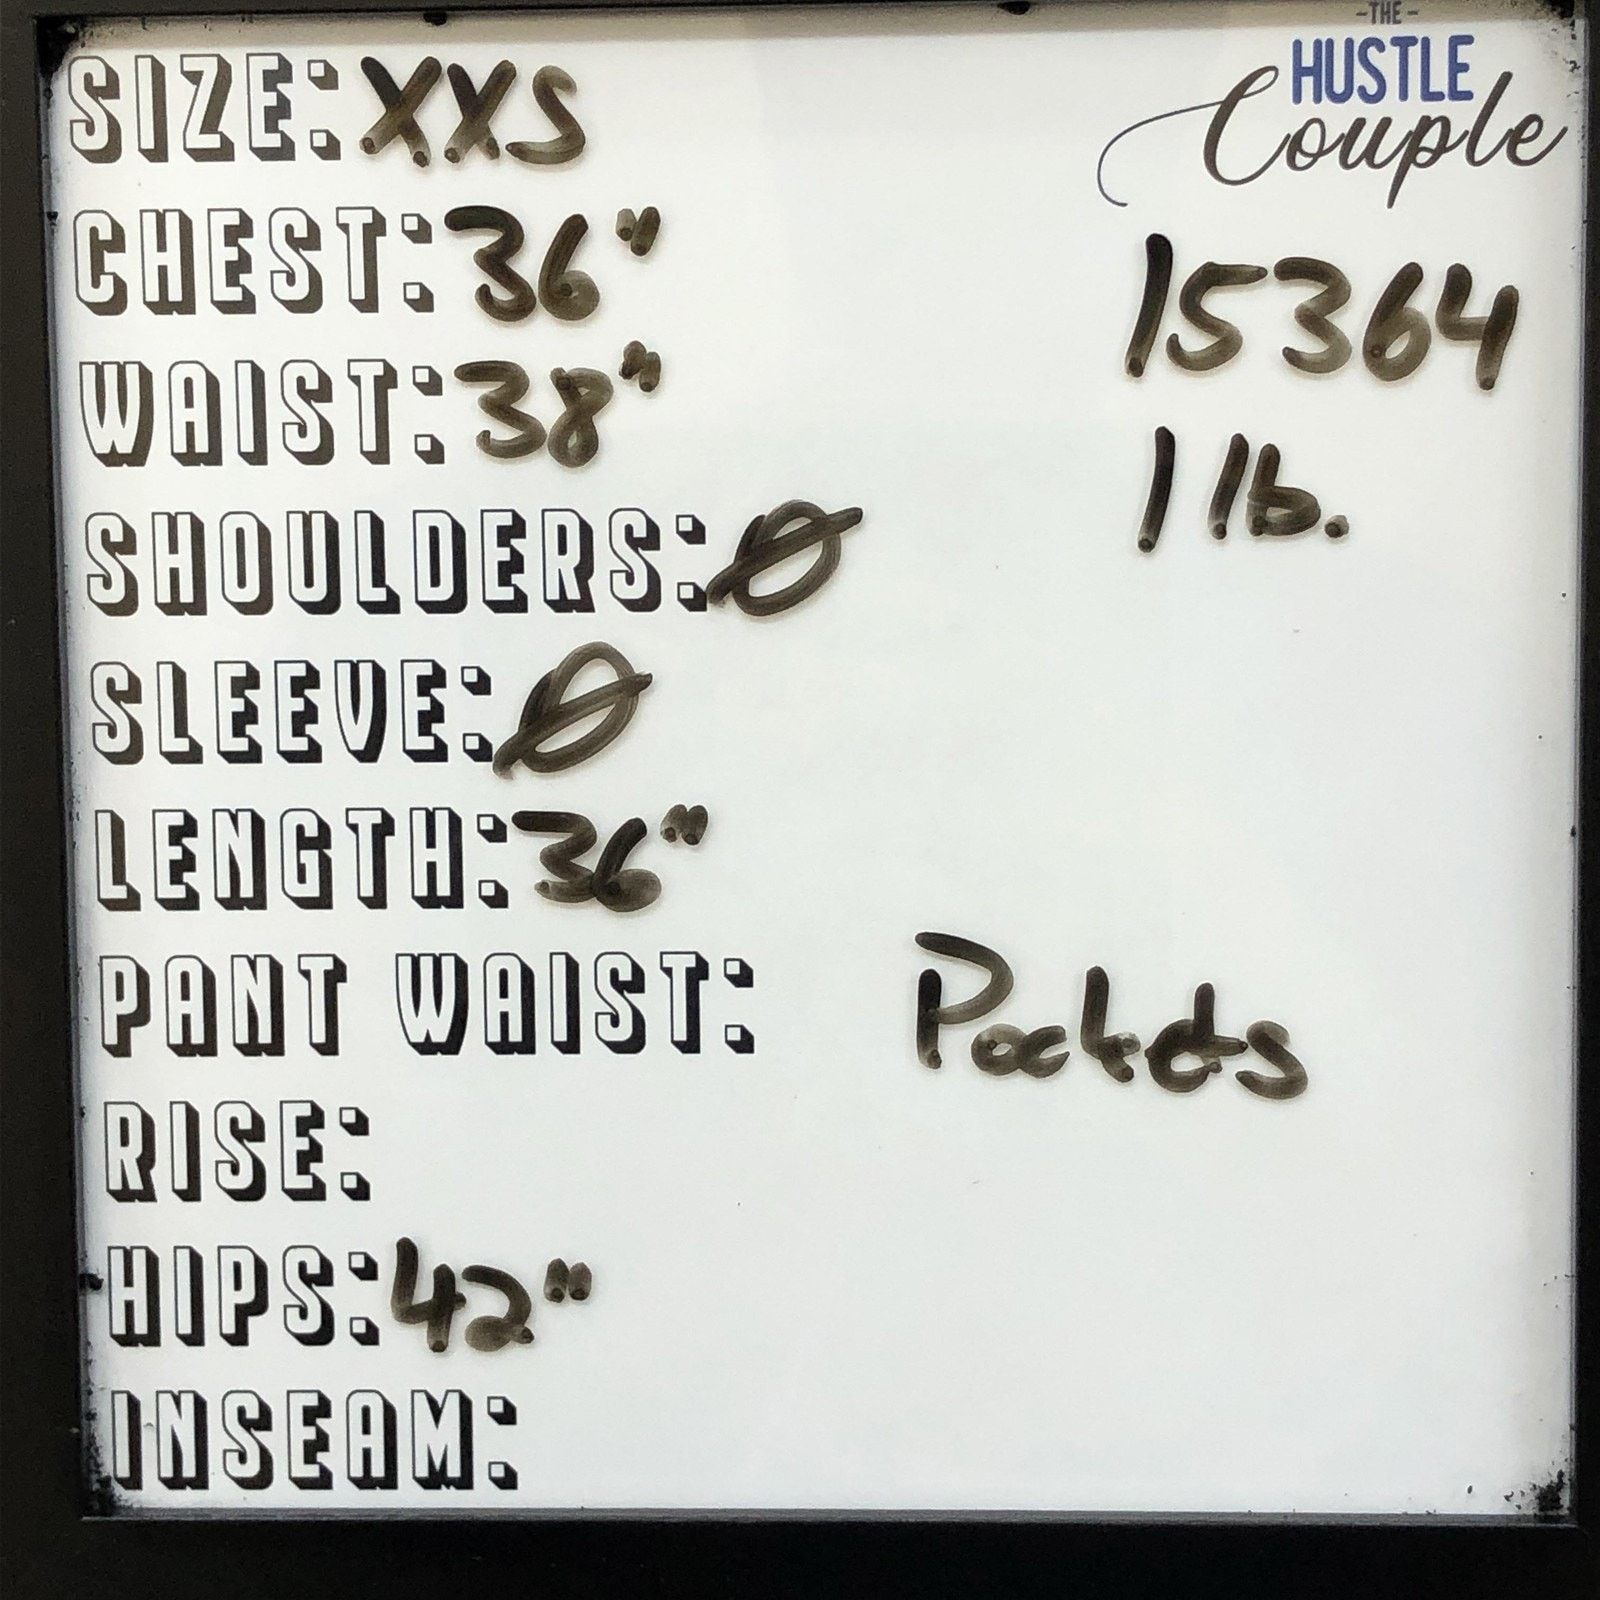 -THE-
HUSTLE
Couple
SIZE: XXS
CHEST: 36"
WAIST: 38"
SHOULDERS: Ø
SLEEVE: Ø
LENGTH: 36"
PANT WAIST:
RISE:
HIPS: 42"
INSEAM:
15364
1 lb.
Pockets